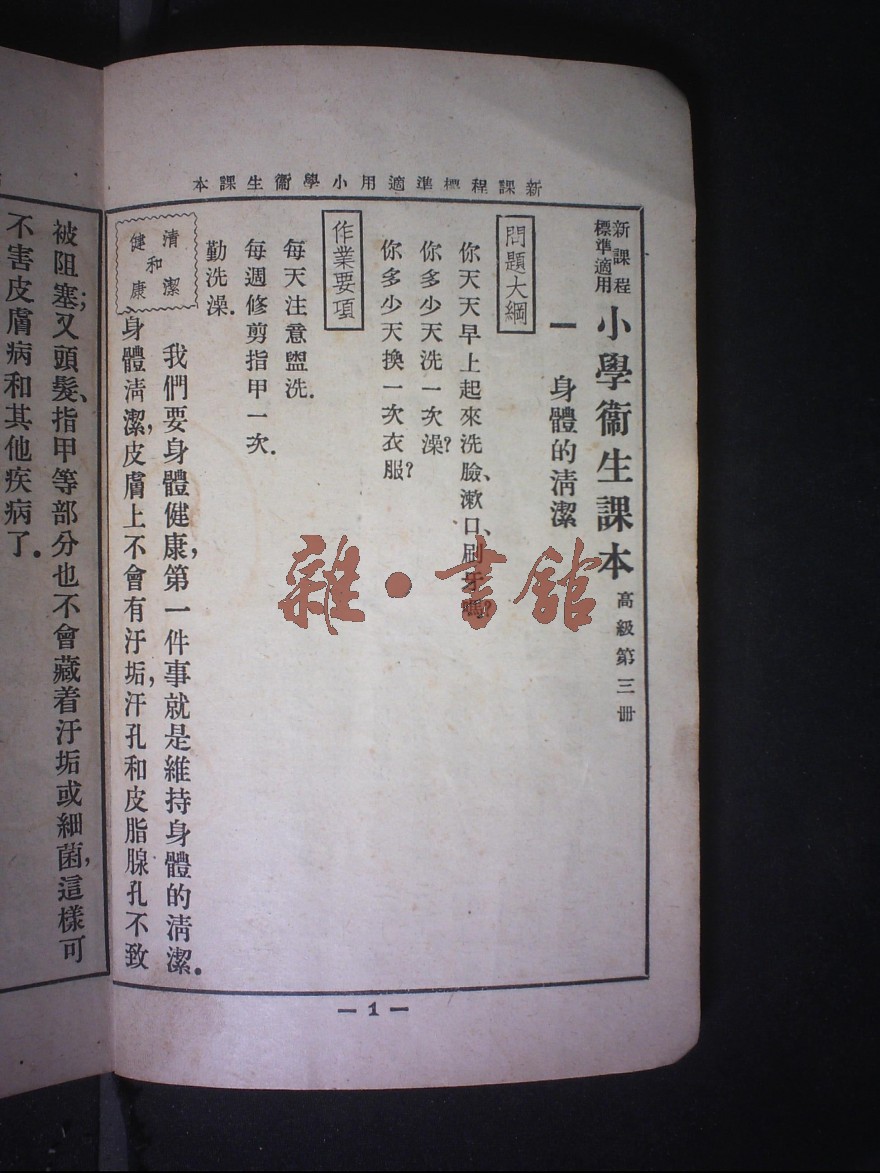 新課程標準適用小學衞生課本
新課程
標準適用
小學衞生課本 高級第三冊
一 身體的清潔
問題大綱
你天天早上起來洗臉、漱口、刷牙嗎?
你多少天洗一次澡?
你多少天換一次衣服?
作業要項
每天注意盥洗.
每週修剪指甲一次.
勤洗澡.
清潔
和
健康
我們要身體健康,第一件事就是維持身體的清潔.
身體清潔,皮膚上不會有汙垢,汗孔和皮脂腺孔不致
— 1 —
被阻塞;又頭髮、指甲等部分也不會藏着汙垢或細菌,這樣可
不害皮膚病和其他疾病了.
雜·書館